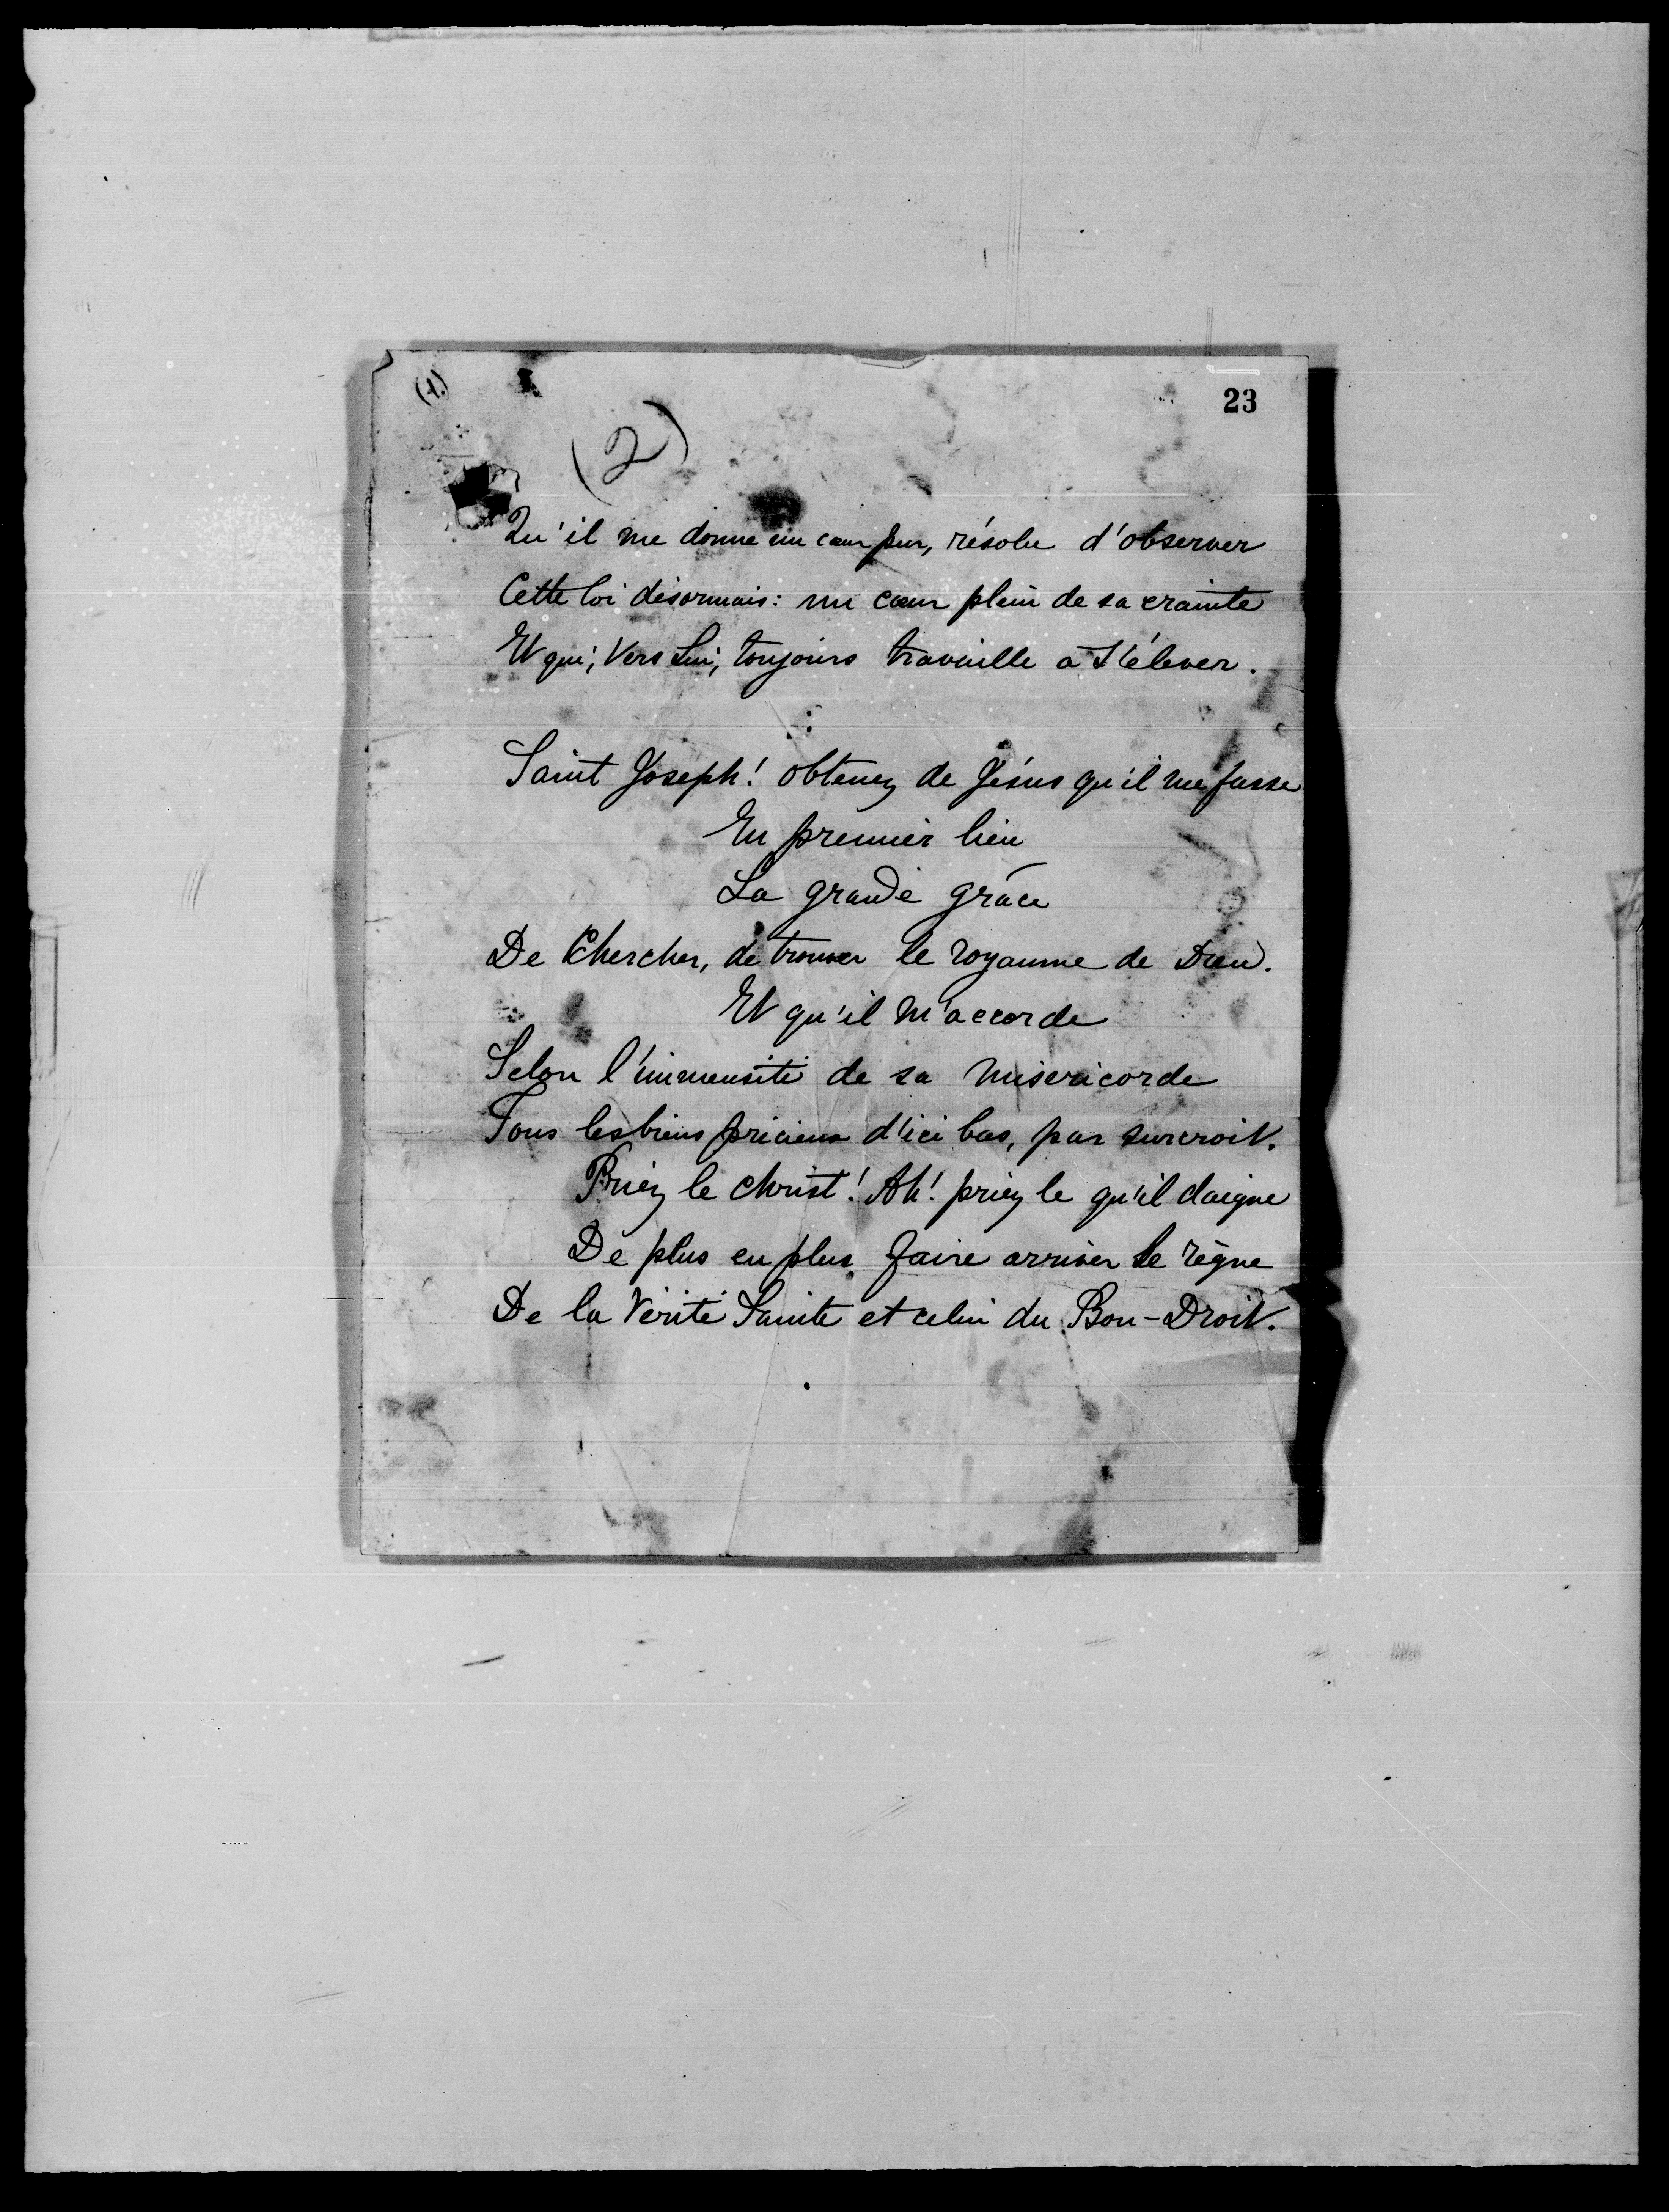 23
(2)
Qu'il me donne un cœur pur, résolu d'observer
Cette loi désormais: un cœur plein de sa crainte
Et qui, vers Lui, toujours travaille a s'élever.
Saint Joseph! obtenez de Jésus qu'il me fasse
En premier lieu
La grande grâce
De Chercher, de trouver le royaume de Dieu.
Et qu'il m'accorde
Selon l'immensité de sa miséricorde
Tous les biens précieux d'ici bas, par surcroit.
Priez le Christ! Ah! priez le qu'il daigne
De plus en plus faire arriver le règne
De la Vérité Sainte et celui du Bon-Droit.